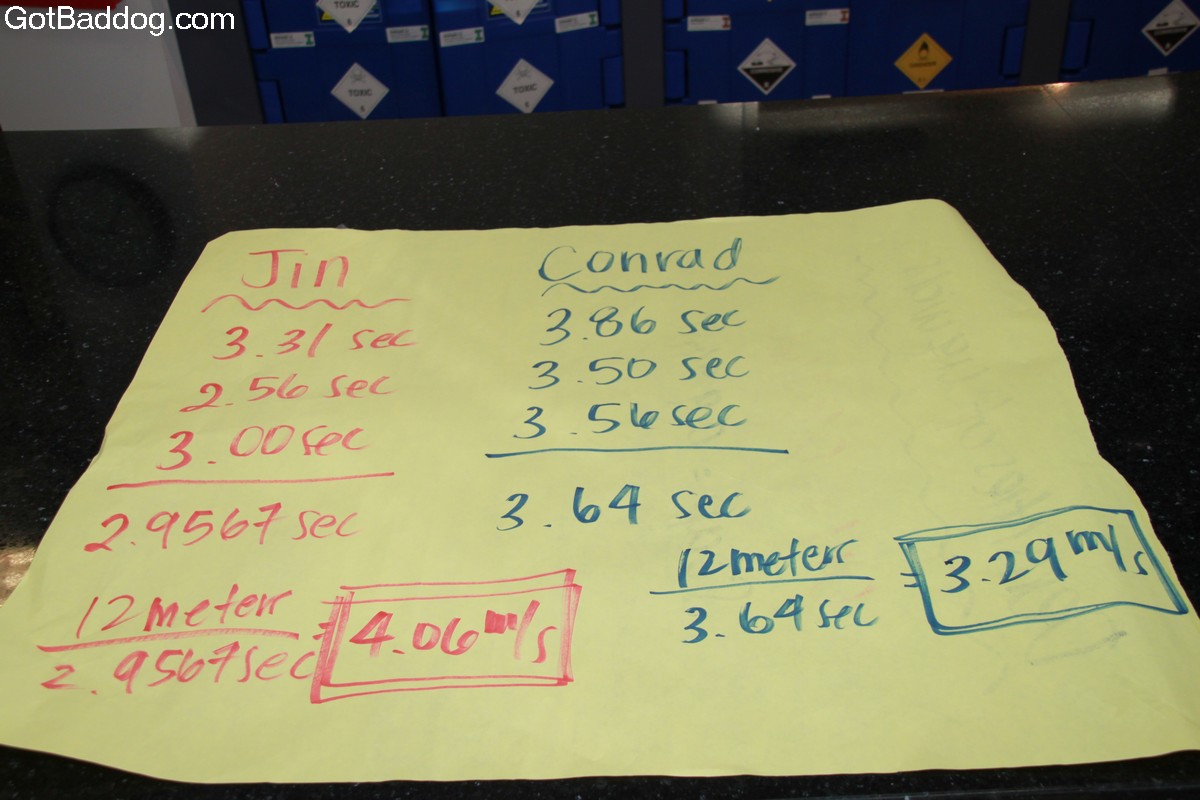 GotBaddog.com
TOXIC
TOXIC
TOXIC
Jin
3.31 sec
2.56 sec
3.00 sec
2.9567 sec
12 meters
2.9567 sec
= 4.06 m/s
Conrad
3.86 sec
3.50 sec
3.56 sec
3.64 sec
12 meters
3.64 sec
= 3.29 m/s